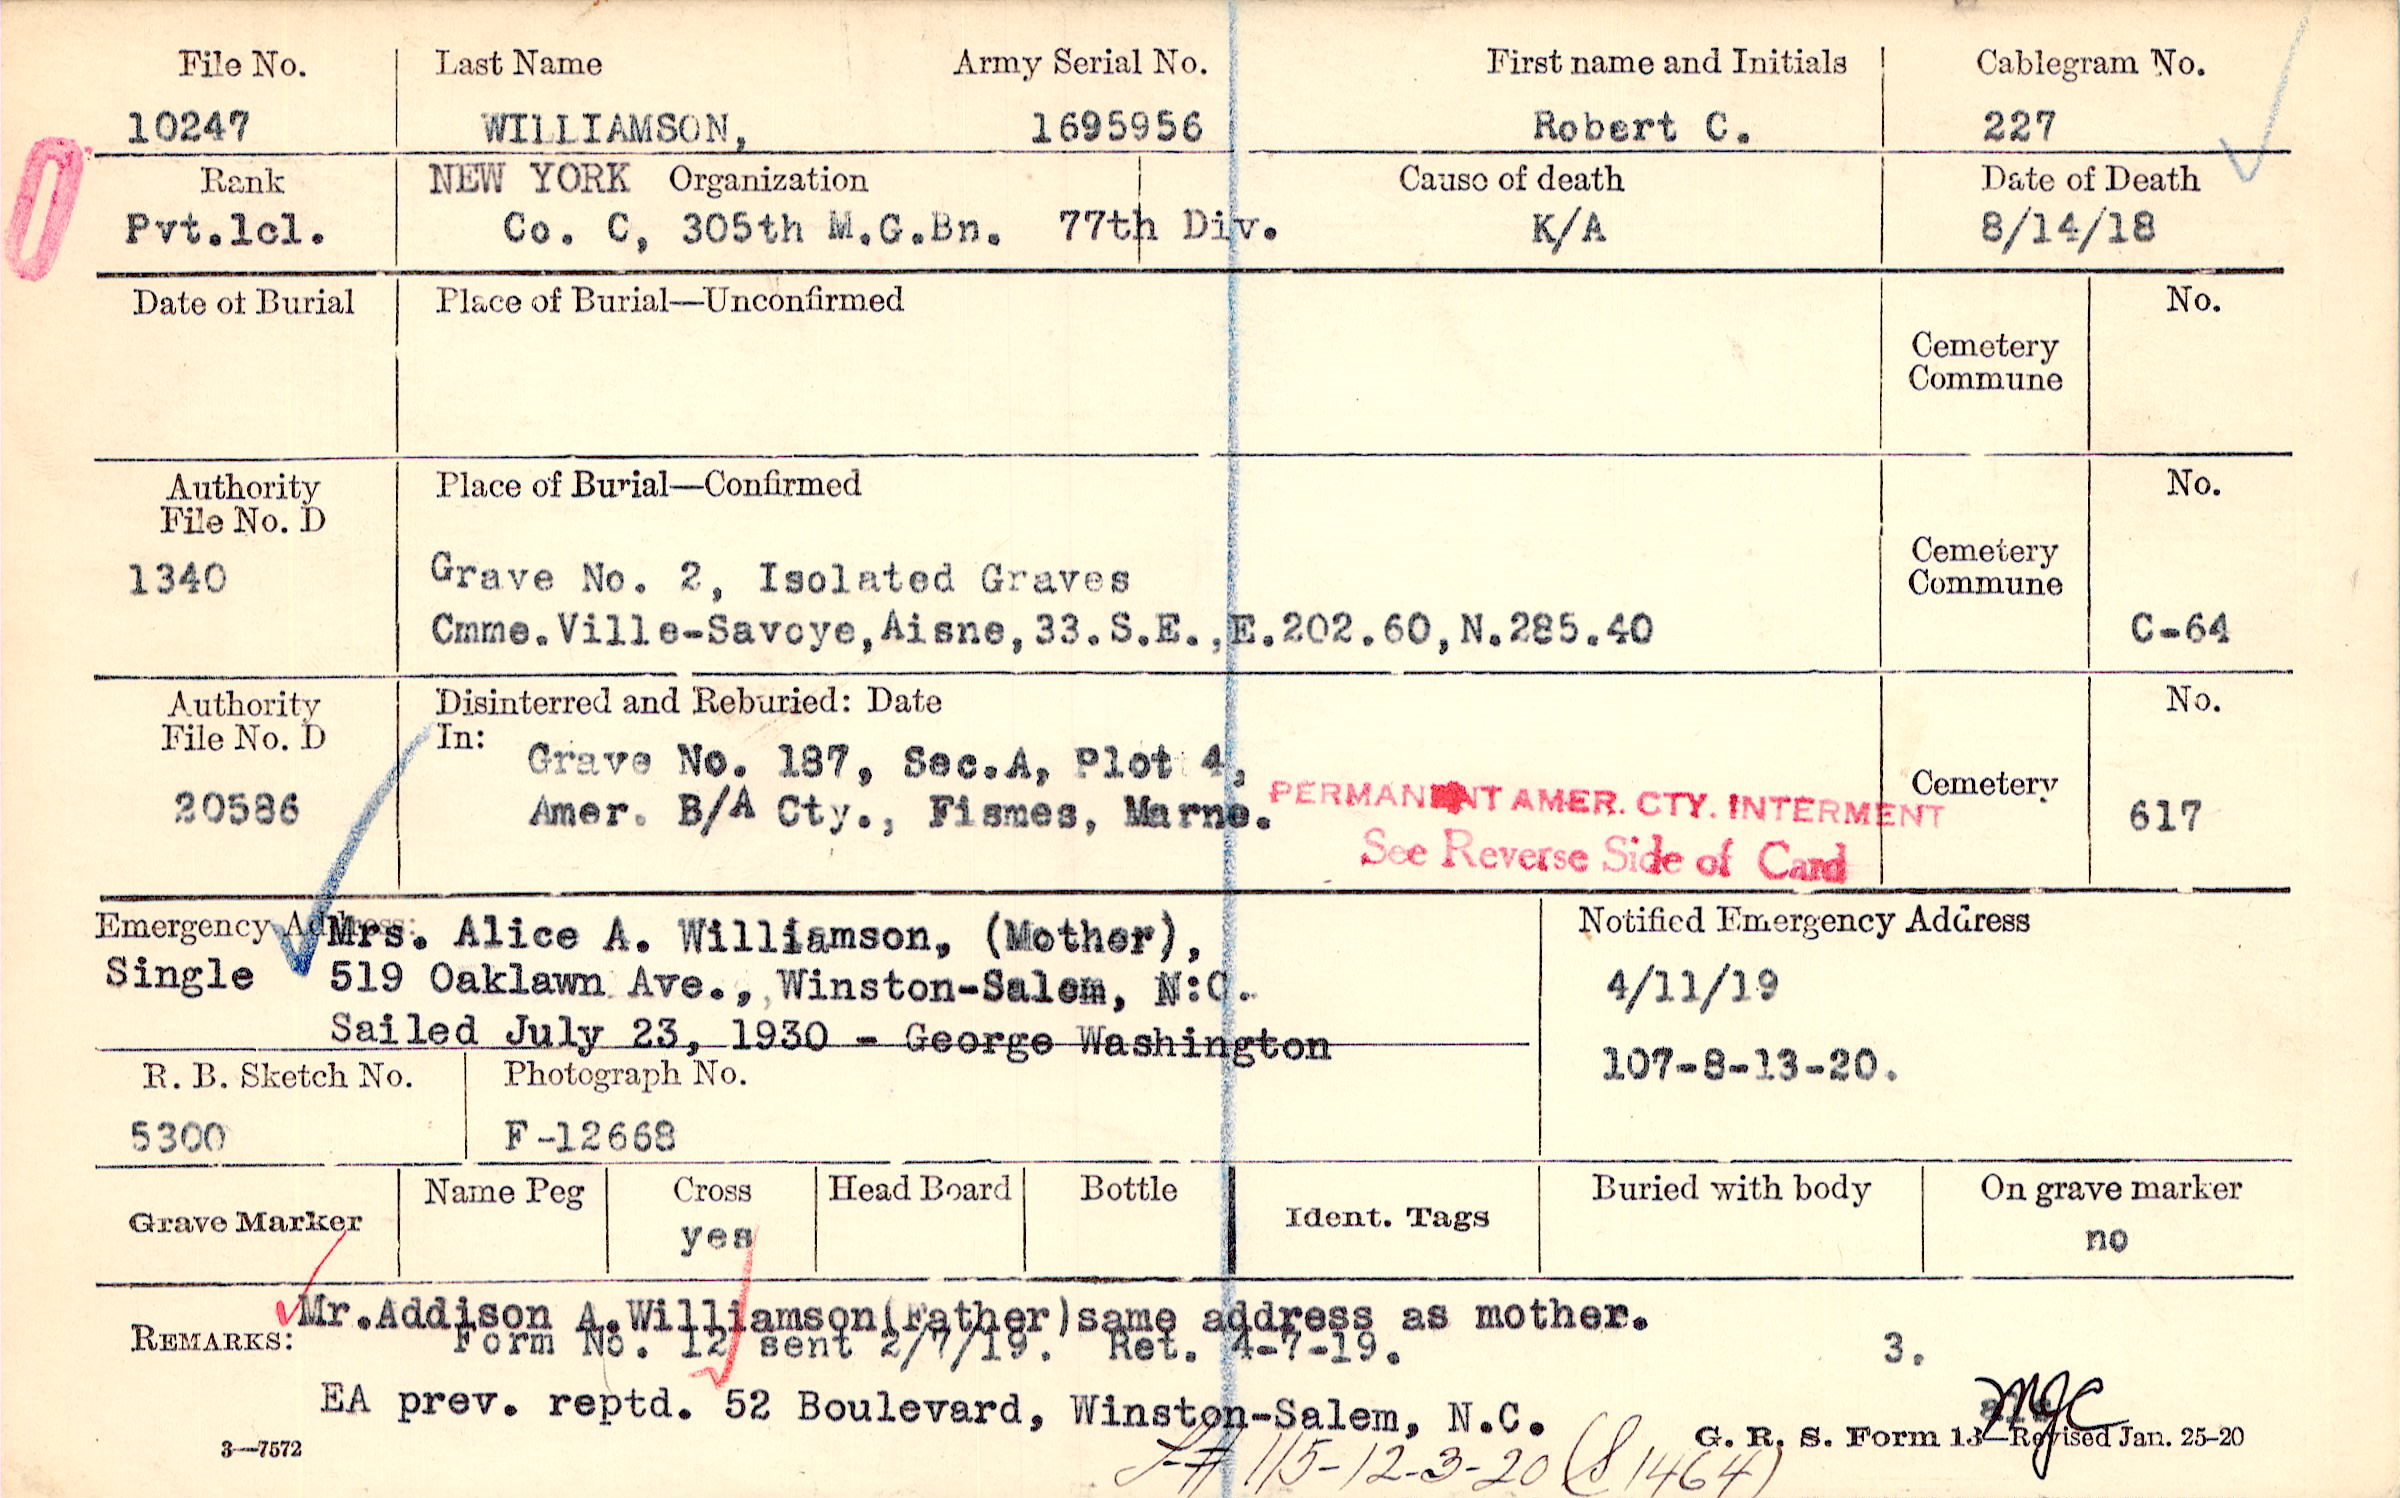 File No. Last Name Army Serial No. First name and Initials Cablegram No.
10247 WILLIAMSON, 1695956 Robert C. 227
Rank NEW YORK Organization Cause of death Date of Death
Pvt.1cl. Co. C, 305th M.G.Bn. 77th Div. K/A 8/14/18
Date of Burial Place of Burial—Unconfirmed No.
Cemetery
Commune
Authority Place of Burial—Confirmed No.
File No. D
Cemetery
1340 Grave No. 2, Isolated Graves Commune
Cmme.Ville-Savoye,Aisne,33.S.E.,E.202.60,N.285.40 C-64
Authority Disinterred and Reburied: Date No.
File No. D In:
Grave No. 187, Sec.A, Plot 4,
20586 Amer. B/A Cty., Fismes, Marne. Cemetery 617
PERMANENT AMER. CTY. INTERMENT
See Reverse Side of Card
Emergency Address: Mrs. Alice A. Williamson, (Mother), Notified Emergency Address
Single 519 Oaklawn Ave., Winston-Salem, N.C. 4/11/19
Sailed July 23, 1930 - George Washington
107-8-13-20.
R. B. Sketch No. Photograph No.
5300 F-12668
Grave Marker Name Peg Cross Head Board Bottle Ident. Tags Buried with body On grave marker
yes no
Mr.Addison A.Williamson(Father)same address as mother.
REMARKS: Form No. 12 sent 2/7/19. Ret. 4-7-19. 3.
EA prev. reptd. 52 Boulevard, Winston-Salem, N.C.
MJC
3—7572 G. R. S. Form 13—Revised Jan. 25-20
115-12-3-20 (S 1464)